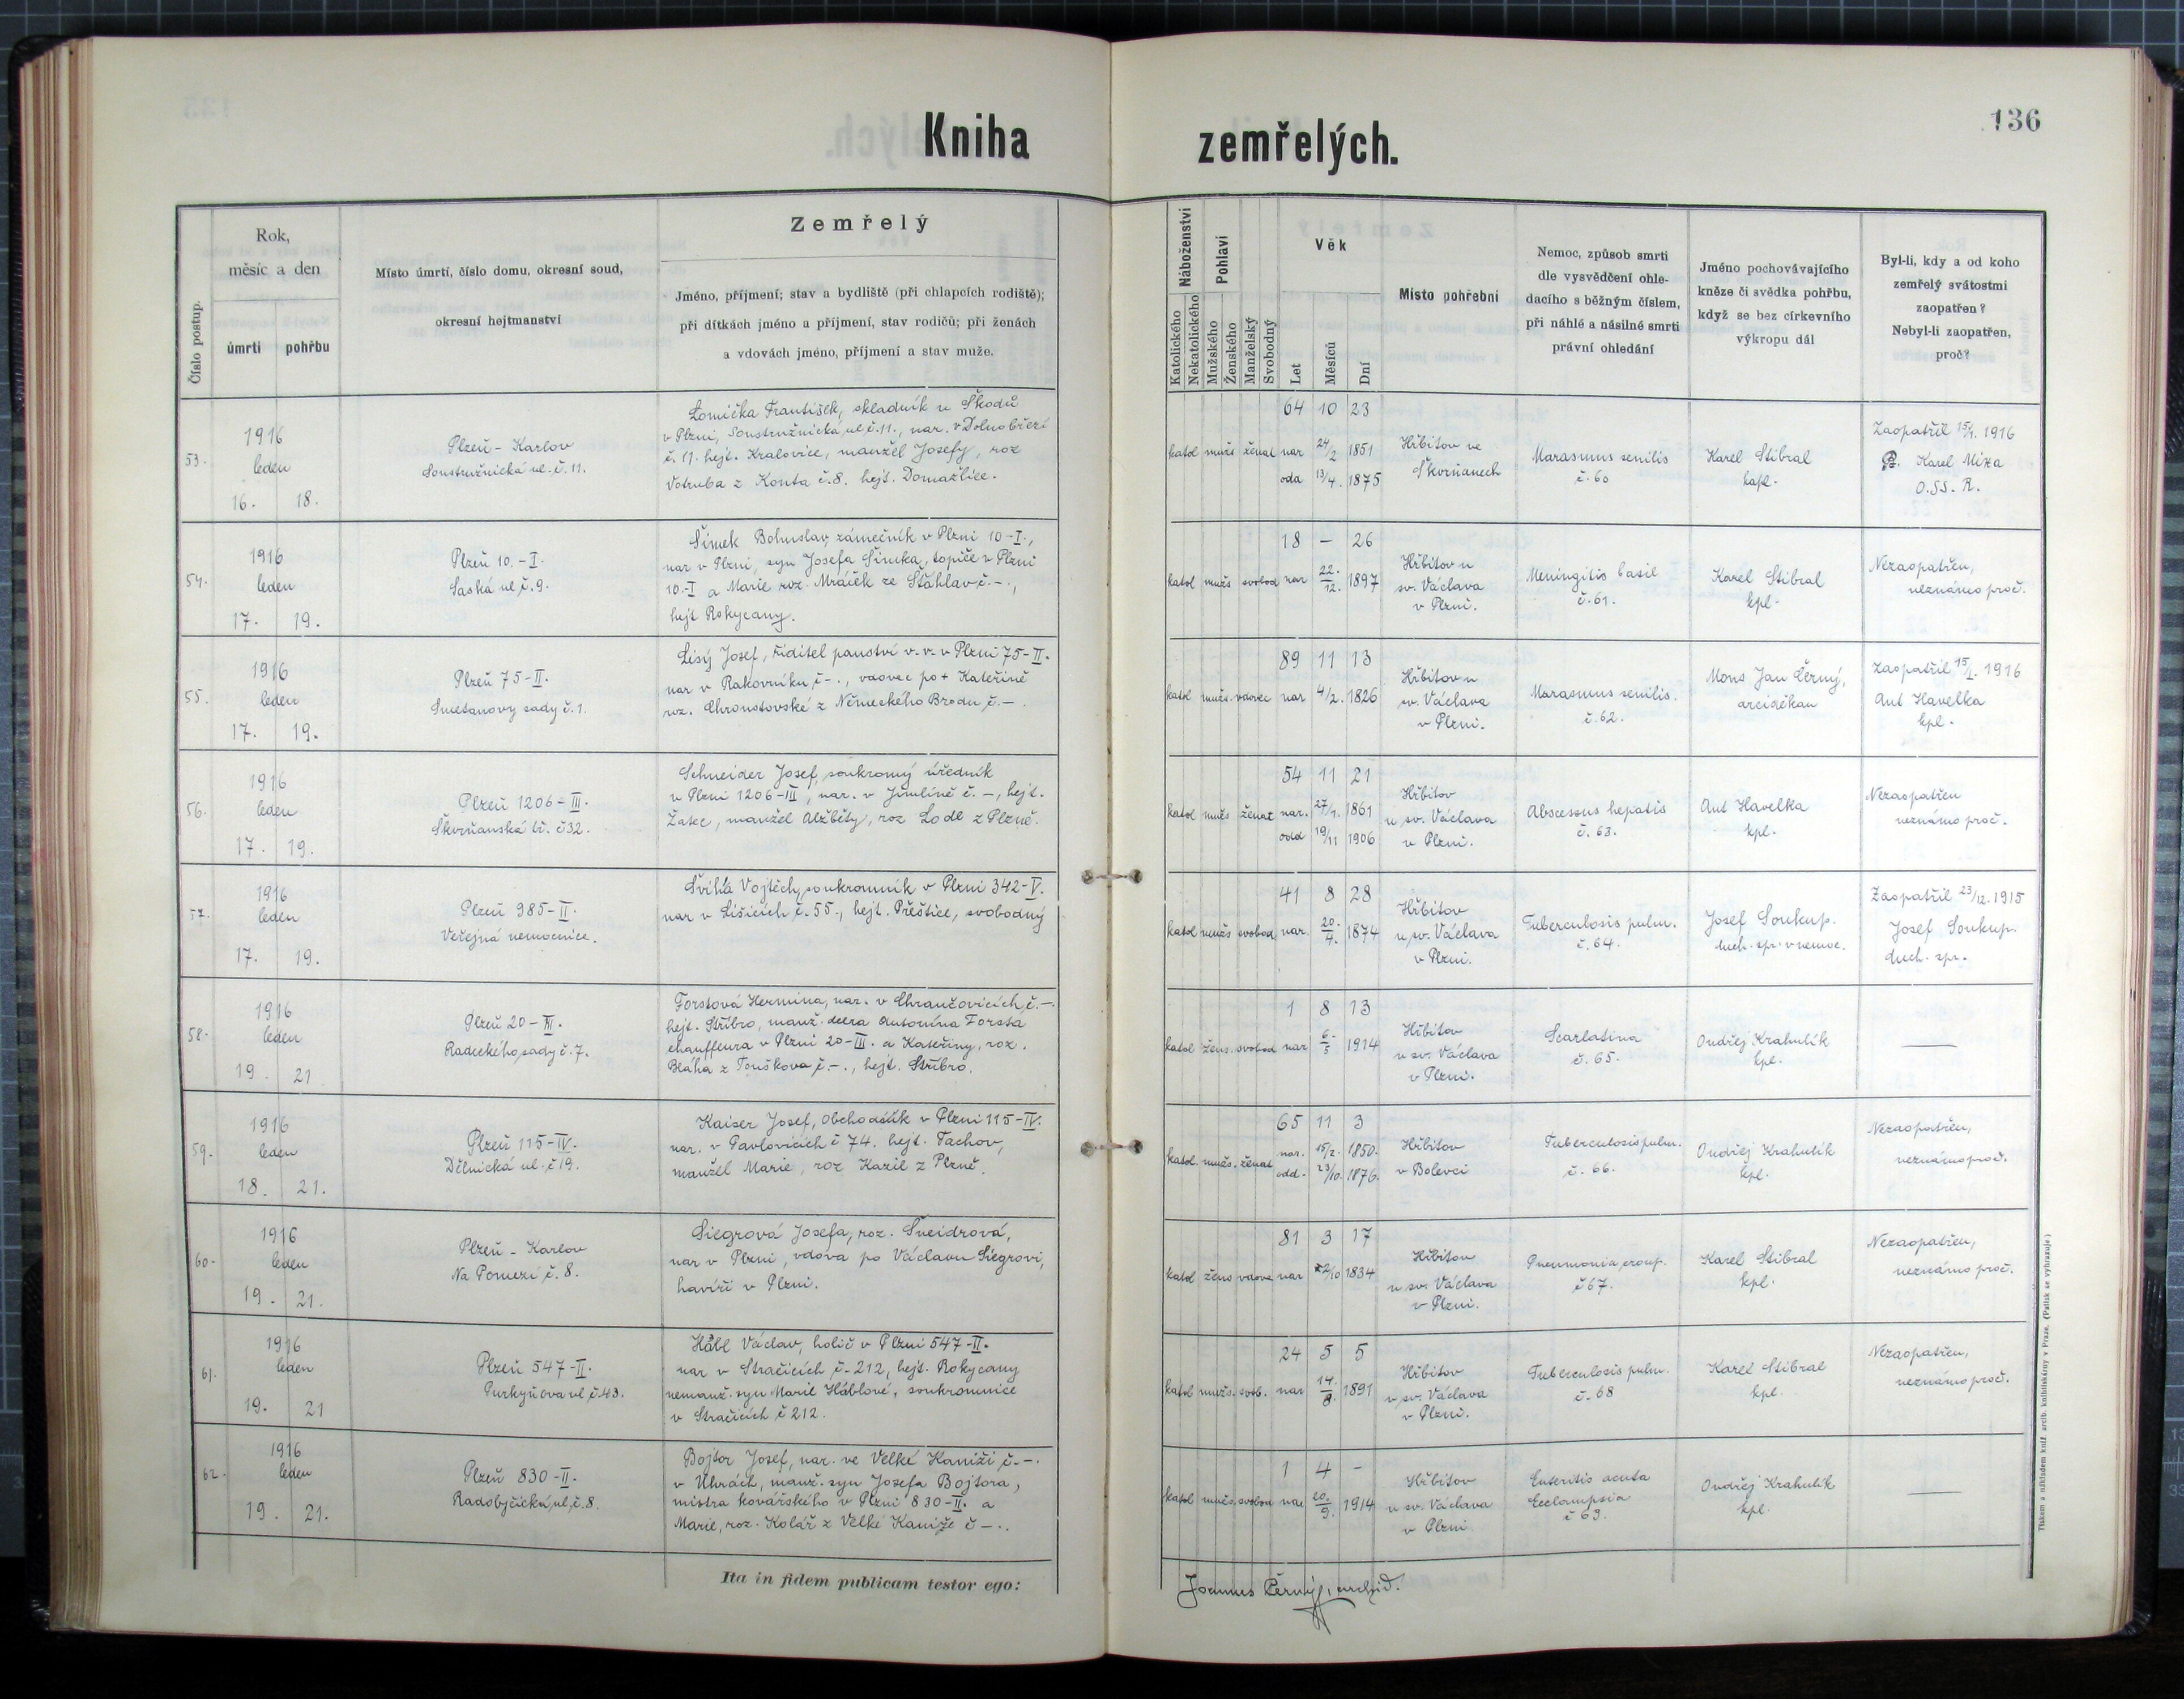 136
Kniha zemřelých.
Číslo postup.
Rok,
měsíc a den
úmrtí
pohřbu
Místo úmrtí, číslo domu, okresní soud,
okresní hejtmanství
Zemřelý
Jméno, příjmení; stav a bydliště (při chlapcích rodiště);
při dítkách jméno a příjmení, stav rodičů; při ženách
a vdovách jméno, příjmení a stav muže.
Náboženství
Katolického
Nekatolického
Pohlaví
Mužského
Ženského
Manželský
Svobodný
Věk
Let
Měsíců
Dní
Místo pohřební
Nemoc, způsob smrti
dle vysvědčení ohle-
dacího s běžným číslem,
při náhlé a násilné smrti
právní ohledání
Jméno pochovávajícího
kněze či svědka pohřbu,
když se bez církevního
výkropu dál
Byl-li, kdy a od koho
zemřelý svátostmi
zaopatřen?
Nebyl-li zaopatřen,
proč?
53.
1916
leden
16. 18.
Plzeň - Karlov
Soustružnická ul. č. 11.
Lomička František, skladník u Škodů
v Plzni, Soustružnická ul. č. 11., nar. v Dolnobřezí
č. 11. hejt. Kralovice, manžel Josefy, roz
Votruba z Konta č. 8. hejt. Domažlice.
katol mužs ženat
64 10 23
nar 24/2 1851
oda 13/4. 1875
Hřbitov ve
Skvrňanech
Marasmus senilis
č. 60
Karel Stibral
kapl.
Zaopatřil 15/1. 1916
P. Karel Miza
O.SS.R.
54.
1916
leden
17. 19.
Plzeň 10.-I.
Saská ul. č. 9.
Šimek Bohuslav, zámečník v Plzni 10-I.,
nar v Plzni, syn Josefa Šimka, topiče v Plzni
10.-I a Marie roz. Mráček ze Šťáhlav č. -.,
hejt Rokycany.
katol mužs svobod
18 - 26
nar 22./12. 1897
Hřbitov u
sv. Václava
v Plzni.
Meningitis basil
č. 61.
Karel Stibral
kpl.
Nezaopatřen,
neznámo proč.
55.
1916
leden
17. 19.
Plzeň 75-II.
Smetanovy sady č. 1.
Lisý Josef, ředitel panství v.v. v Plzni 75-II.
nar v Rakovníku č -., vdovec po + Kateřině
roz. Chroustovské z Německého Brodu č. -.
katol mužs. vdovec
89 11 13
nar 4/2. 1826
Hřbitov u
sv. Václava
v Plzni.
Marasmus senilis.
č. 62.
Mons Jan Černý,
arciděkan
Zaopatřil 15/1. 1916
Ant Havelka
kpl.
56.
1916
leden
17. 19.
Plzeň 1206-III.
Skvrňanská tř. č 32.
Schneider Josef, soukromý úředník
v Plzni 1206-III, nar. v Jimlíně č. -, hejt.
Žatec, manžel Alžběty, roz Lodl z Plzně.
katol mužs ženat
54 11 21
nar. 27/1. 1861
odd 19/11 1906
Hřbitov
u sv. Václava
v Plzni.
Abscessus hepatis
č. 63.
Ant Havelka
kpl.
Nezaopatřen
neznámo proč.
57.
1916
leden
17. 19.
Plzeň 985-II.
Veřejná nemocnice.
Švihla Vojtěch, soukromník v Plzni 342-V.
nar v Lišicích č. 55., hejt. Přeštice, svobodný
katol mužs svobod
41 8 28
nar. 20./4. 1874
Hřbitov
u sv. Václava
v Plzni.
Tuberculosis pulm.
č. 64.
Josef Soukup.
duch. spr. v nemoc.
Zaopatřil 23/12. 1915
Josef Soukup.
duch. spr.
58.
1916
leden
19. 21
Plzeň 20-III.
Radeckého sady č. 7.
Forstová Hermina, nar. v Chrančovicích č. -.
hejt. Stříbro, manž. dcera Antonína Forsta
chauffeura v Plzni 20-III. a Kateřiny, roz.
Bláha z Touškova č. -., hejt. Stříbro.
katol žens. svobod
1 8 13
nar 6/5 1914
Hřbitov
u sv. Václava
v Plzni.
Scarlatina
č. 65.
Ondřej Krahulík
kpl.
—
59.
1916
leden
18. 21.
Plzeň 115-IV.
Dělnická ul. č 19.
Kaiser Josef, obchodník v Plzni 115-IV.
nar. v Pavlovicích č 74. hejt. Tachov,
manžel Marie, roz Kazil z Plzně.
katol. mužs. ženat
65 11 3
nar. 15/2. 1850.
odd. 23/10. 1876.
Hřbitov
v Bolevci
Tuberculosis pulm.
č. 66.
Ondřej Krahulík
kpl.
Nezaopatřen,
neznámo proč.
60.
1916
leden
19. 21.
Plzeň - Karlov
Na Pomezí č. 8.
Siegrová Josefa, roz. Šneidrová,
nar v Plzni, vdova po Václavu Siegrovi,
havíři v Plzni.
katol žens vdova
81 3 17
nar 2/10 1834
Hřbitov
u sv. Václava
v Plzni.
Pneumonia croup.
č 67.
Karel Stibral
kpl.
Nezaopatřen,
neznámo proč.
61.
1916
leden
19. 21
Plzeň 547-II.
Purkyňova ul. č. 43.
Hábl Václav, holič v Plzni 547-II.
nar v Stračicích č. 212, hejt. Rokycany
nemanž. syn Marie Háblové, soukromnice
v Stračicích č 212.
katol mužs. svob.
24 5 5
nar 14./8. 1891
Hřbitov
u sv. Václava
v Plzni.
Tuberculosis pulm.
č. 68
Karel Stibral
kpl.
Nezaopatřen,
neznámo proč.
62.
1916
leden
19. 21.
Plzeň 830-II.
Radobyčická ul. č. 8.
Bojtor Josef, nar. ve Velké Kaniži č. -.
v Uhrách, manž. syn Josefa Bojtora,
mistra kovářského v Plzni 830-II. a
Marie, roz. Kolář z Velké Kaniže č -..
katol mužs. svobod
1 4 -
nar 20./9. 1914
Hřbitov
u sv. Václava
v Plzni
Enteritis acuta
Ecclampsia
č 69.
Ondřej Krahulík
kpl.
—
Ita in fidem publicam testor ego:
Joannes Černý, archid.